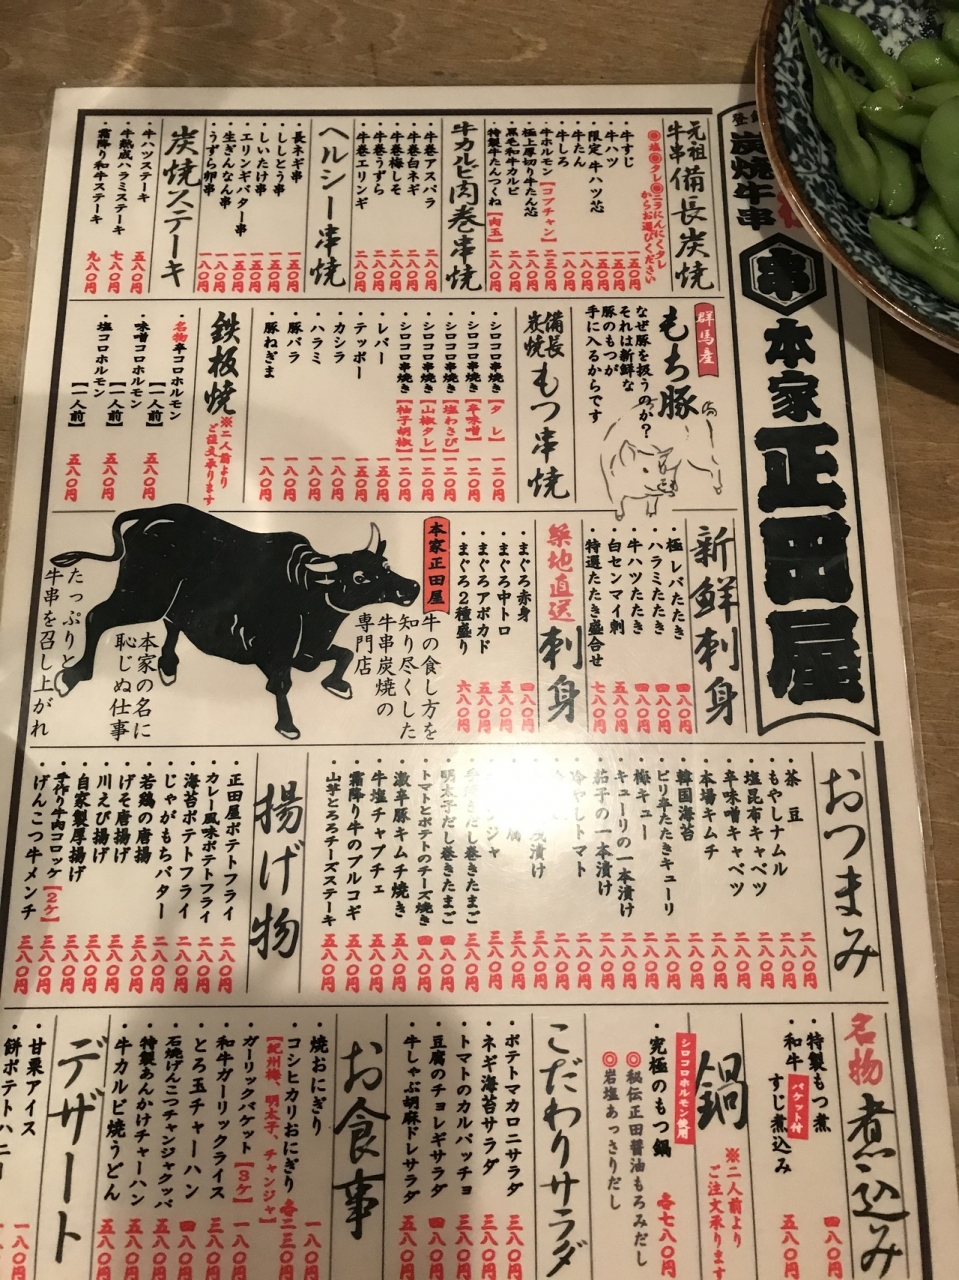 炭焼牛串
串
本家正田屋
元祖
牛串備長炭焼
◎塩◎タレ◎ニラにんにくタレ
からお選びください
・牛すじ 一五〇円
・限定 牛ハツ芯
・牛たん
・牛しろ
・牛ホルモン【コプチャン】
・極上厚切り牛たん芯
・黒毛和牛カルビ
・特製牛たんつくね【肉玉】
牛カルビ肉巻串焼
・牛巻アスパラ 二八〇円
・牛巻白ネギ 二八〇円
・牛巻梅しそ 二八〇円
・牛巻うずら 二八〇円
・牛巻エリンギ 二八〇円
ヘルシー串焼
・長ネギ串 一五〇円
・ししとう串 一五〇円
・しいたけ串 一五〇円
・エリンギバター串 一五〇円
・生ぎんなん串 一八〇円
・うずら卵串 一八〇円
炭焼ステーキ
・牛ハツステーキ 五八〇円
・牛熟成ハラミステーキ 七八〇円
・霜降り和牛ステーキ 九八〇円
群馬産
もち豚
なぜ豚を扱うのか?
それは新鮮な
豚のもつが
手に入るからです
備長炭焼もつ串焼
・シロコロ串焼き【タレ】 一二〇円
・シロコロ串焼き【辛味噌】 一二〇円
・シロコロ串焼き【塩わさび】 一二〇円
・シロコロ串焼き【山椒タレ】 一二〇円
・シロコロ串焼き【柚子胡椒】 一二〇円
・レバー 一五〇円
・テッポー 一五〇円
・カシラ 一八〇円
・ハラミ 一八〇円
・豚バラ 一八〇円
・豚ねぎま 一八〇円
鉄板焼
※二人前より
ご注文承ります
・名物辛コロホルモン【一人前】 五八〇円
・味噌コロホルモン【一人前】 五八〇円
・塩コロホルモン【一人前】 五八〇円
新鮮刺身
・極レバたたき 四八〇円
・ハラミたたき 四八〇円
・牛ハツたたき 四八〇円
・白センマイ刺 五八〇円
・特選たたき盛合せ 七八〇円
築地直送刺身
・まぐろ赤身 四八〇円
・まぐろ中トロ 五八〇円
・まぐろアボカド 五八〇円
・まぐろ2種盛り 六八〇円
本家正田屋
牛の食し方を
知り尽くした
牛串炭焼の
専門店
本家の名に
恥じぬ仕事
たっぷりと
牛串を召し上がれ
おつまみ
・茶豆 二八〇円
・もやしナムル 二八〇円
・塩昆布キャベツ 二八〇円
・辛味噌キャベツ 二八〇円
・本場キムチ 二八〇円
・韓国海苔 二八〇円
・ピリ辛たたきキューリ 二八〇円
・梅キュー 二八〇円
・キューリの一本漬け 二八〇円
・茄子の一本漬け 二八〇円
・冷やしトマト
漬け
・明太子だし巻きたまご 四八〇円
・トマトとポテトのチーズ焼き 四八〇円
・激辛豚キムチ焼き 五八〇円
・牛塩チャプチェ 五八〇円
・霜降り牛のプルコギ 五八〇円
・山芋とろろチーズステーキ 五八〇円
揚げ物
・正田屋ポテトフライ 二八〇円
・カレー風味ポテトフライ 二八〇円
・海苔ポテトフライ 二八〇円
・じゃがもちバター 二八〇円
・若鶏の唐揚 三八〇円
・げそ唐揚げ 三八〇円
・川えび揚げ 三八〇円
・自家製厚揚げ 三八〇円
・手作り牛肉コロッケ【2ケ】 三八〇円
・げんこつ牛メンチ 三八〇円
名物煮込み
・特製もつ煮 四八〇円
・和牛すじ煮込み 五八〇円
バケット付
鍋
※二人前より
ご注文承ります
シロコロホルモン使用
・究極のもつ鍋 各七八〇円
◎秘伝正田醤油もろみだし
◎岩塩あっさりだし
こだわりサラダ
・ポテトマカロニサラダ 三八〇円
・ネギ海苔サラダ 三八〇円
・トマトのカルパッチョ 三八〇円
・豆腐のチョレギサラダ 四八〇円
・牛しゃぶ胡麻ドレサラダ 五八〇円
お食事
・焼おにぎり 一八〇円
・コシヒカリおにぎり 各二三〇円
【紀州梅、明太子、チャンジャ】
・ガーリックバケット【3ケ】 一八〇円
・和牛ガーリックライス
・とろ玉チャーハン
・石焼げんこつチャンジャクッパ
・特製あんかけチャーハン
・牛カルビ焼うどん 五八〇円
デザート
・甘栗アイス
・餅ポテトハニー